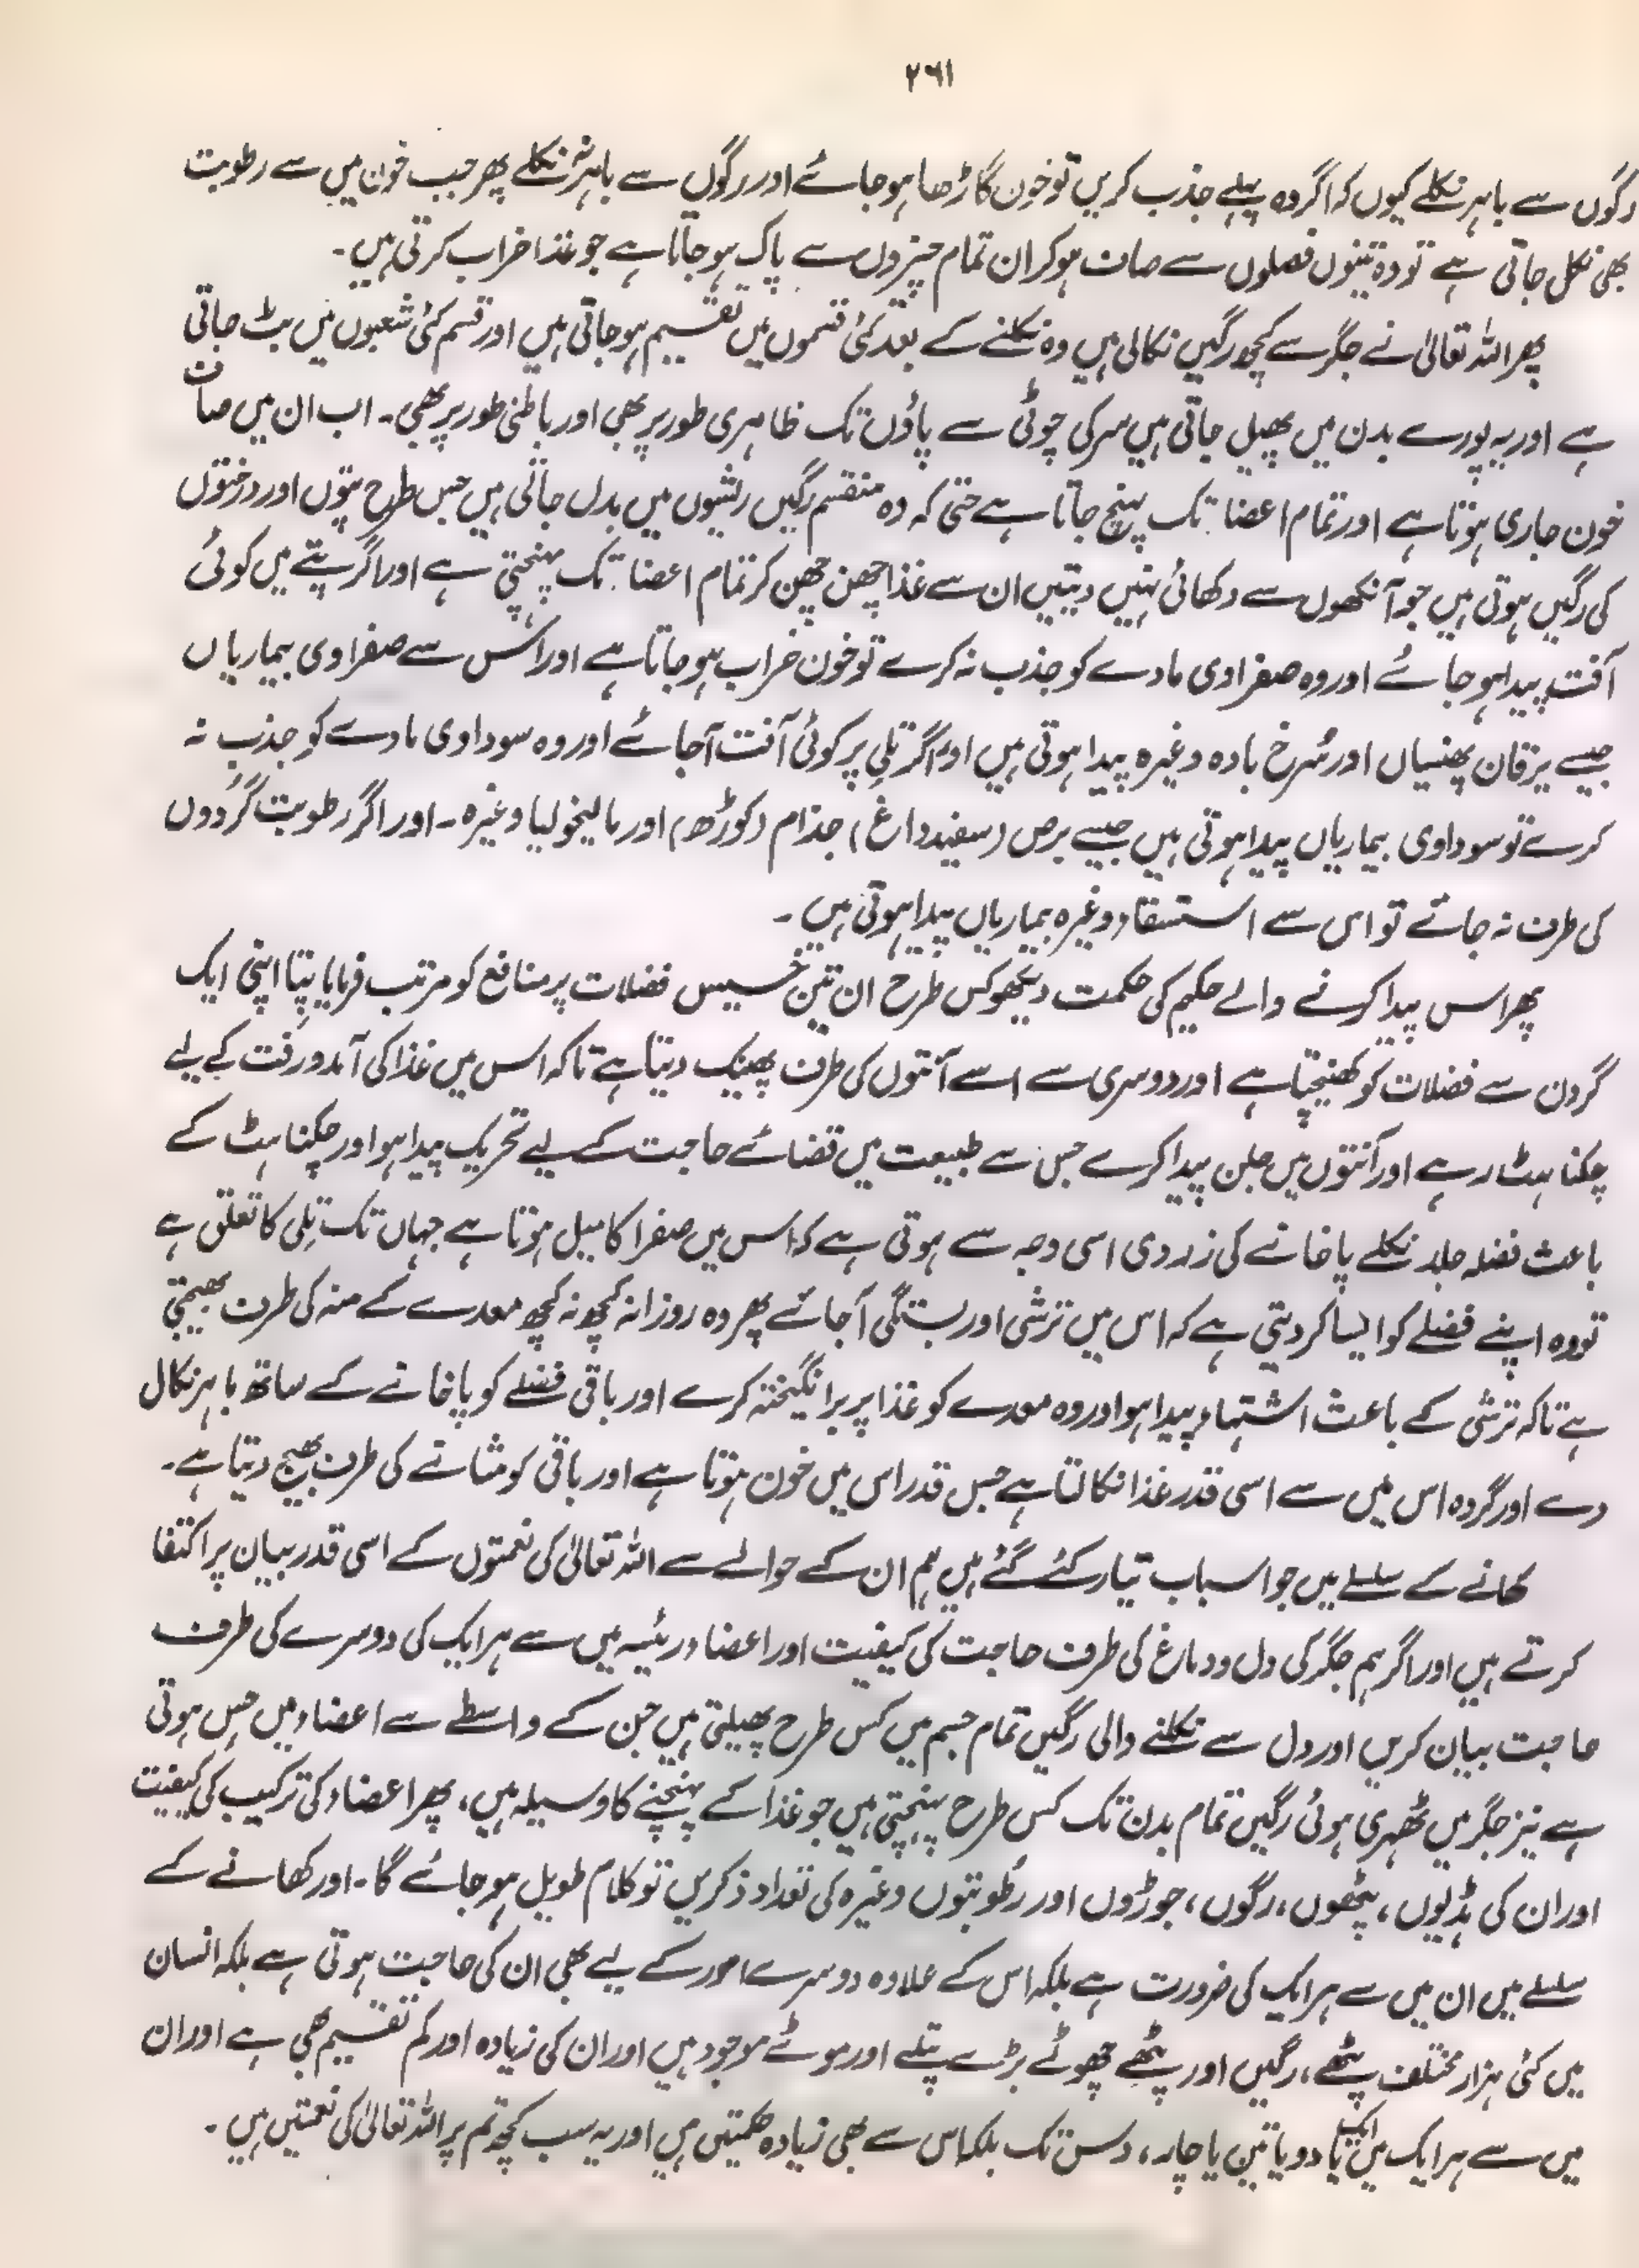 ۲۶۱
رگوں سے باہر نکلے کیوں کہ اگر وہ پہلے جذب کریں تو خون گاڑھا ہو جائے اور رگوں سے باہر نہ نکلے پھر جب خون میں سے رطوبت
بھی نکل جاتی ہے تو وہ تینوں فضلوں سے صاف ہو کر ان تمام چیزوں سے پاک ہو جاتا ہے جو غذا خراب کرتی ہیں۔
پھر اللہ تعالیٰ نے جگر سے کچھ رگیں نکالی ہیں وہ نکلنے کے بعد کئی قسموں میں تقسیم ہو جاتی ہیں اور قسم کئی شعبوں میں بٹ جاتی
ہے اور یہ پورے بدن میں پھیل جاتی ہیں سر کی چوٹی سے پاؤں تک ظاہری طور پر بھی اور باطنی طور پر بھی۔ اب ان میں صاف
خون جاری ہوتا ہے اور تمام اعضاء تک پہنچ جاتا ہے حتیٰ کہ وہ منقسم رگیں ریشوں میں بدل جاتی ہیں جس طرح پتوں اور درختوں
کی رگیں ہوتی ہیں جو آنکھوں سے دکھائی نہیں دیتیں ان سے غذا چھن چھن کر تمام اعضاء تک پہنچتی ہے اور اگر پتے میں کوئی
آفت پیدا ہو جائے اور وہ صفراوی مادے کو جذب نہ کرے تو خون خراب ہو جاتا ہے اور اس سے صفراوی بیماریاں
جیسے یرقان پھنسیاں اور سُرخ بادہ وغیرہ پیدا ہوتی ہیں اور اگر تلی پر کوئی آفت آجائے اور وہ سوداوی مادے کو جذب نہ
کرے تو سوداوی بیماریاں پیدا ہوتی ہیں جیسے برص (سفید داغ) جذام (کوڑھ) اور مالیخولیا وغیرہ۔ اور اگر رطوبت گُردوں
کی طرف نہ جائے تو اس سے استسقاء وغیرہ بیماریاں پیدا ہوتی ہیں۔
پھر اس پیدا کرنے والے حکیم کی حکمت دیکھو کس طرح ان تین خسیس فضلات پر منافع کو مرتب فرمایا پِتا اپنی ایک
گردن سے فضلات کو کھینچتا ہے اور دوسری سے اسے آنتوں کی طرف پھینک دیتا ہے تاکہ اس میں غذا کی آمدورفت کے لیے
چکناہٹ رہے اور آنتوں میں جلن پیدا کرے جس سے طبیعت میں قضائے حاجت کے لیے تحریک پیدا ہو اور چکناہٹ کے
باعث فضلہ جلد نکلے پاخانے کی زردی اسی وجہ سے ہوتی ہے کہ اس میں صفرا کا میل ہوتا ہے جہاں تک تِلی کا تعلق ہے
تو وہ اپنے فضلے کو ایسا کر دیتی ہے کہ اس میں ترشی اور بستگی آجائے پھر وہ روزانہ کچھ نہ کچھ معدے کے منہ کی طرف بھیجتی
ہے تاکہ ترشی کے باعث اشتہاء پیدا ہو اور وہ معدے کو غذا پر برانگیختہ کرے اور باقی فضلے کو پاخانے کے ساتھ باہر نکال
دے اور گردہ اس میں سے اسی قدر غذا نکالتا ہے جس قدر اس میں خون ہوتا ہے اور باقی کو مثانے کی طرف بھیج دیتا ہے۔
کھانے کے سلسلے میں جو اسباب تیار کئے گئے ہیں ہم ان کے حوالے سے اللہ تعالیٰ کی نعمتوں کے اسی قدر بیان پر اکتفا
کرتے ہیں اور اگر ہم جگر کی دل و دماغ کی طرف حاجت کی کیفیت اور اعضاء رئیسہ میں سے ہر ایک کی دوسرے کی طرف
حاجت بیان کریں اور دل سے نکلنے والی رگیں تمام جسم میں کس طرح پھیلتی ہیں جن کے واسطے سے اعضاء میں حِس ہوتی
ہے نیز جگر میں ٹھہری ہوئی رگیں تمام بدن تک کس طرح پہنچتی ہیں جو غذا کے پہنچنے کا وسیلہ ہیں، پھر اعضاء کی ترکیب کی کیفیت
اور ان کی ہڈیوں، پٹھوں، رگوں، جوڑوں اور رطوبتوں وغیرہ کی تعداد ذکر کریں تو کلام طویل ہو جائے گا۔ اور کھانے کے
سلسلے میں ان میں سے ہر ایک کی ضرورت ہے بلکہ اس کے علاوہ دوسرے امور کے لیے بھی ان کی حاجت ہوتی ہے بلکہ انسان
میں کئی ہزار مختلف پٹھے، رگیں اور پٹھے چھوٹے بڑے پتلے اور موٹے موجود ہیں اور ان کی زیادہ اور کم تقسیم بھی ہے اور ان
میں سے ہر ایک میں ایک یا دو یا تین یا چار، دس تک بلکہ اس سے بھی زیادہ حکمتیں ہیں اور یہ سب کچھ تم پر اللہ تعالیٰ کی نعمتیں ہیں۔